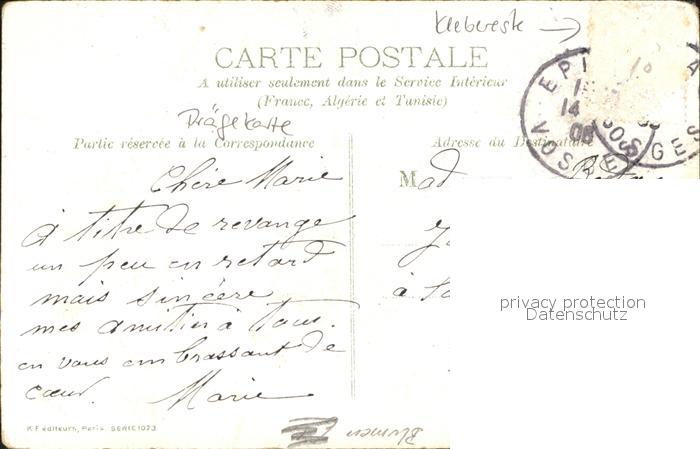 Klebereste
CARTE POSTALE
A utiliser seulement dans le Service Intérieur
(France, Algérie et Tunisie)
Prägekarte
Partie réservée à la Correspondance
Adresse du Destinataire
EPI
14
08
VOSGES
VOSGES
Chère Marie
À titre de revange
un peu en retard
mais sincère
mes amitiés à tous.
en vous embrassant de
cœur. Marie
Mad
à
privacy protection
Datenschutz
K.F. éditeurs, Paris. SERIE 1023
Blumen